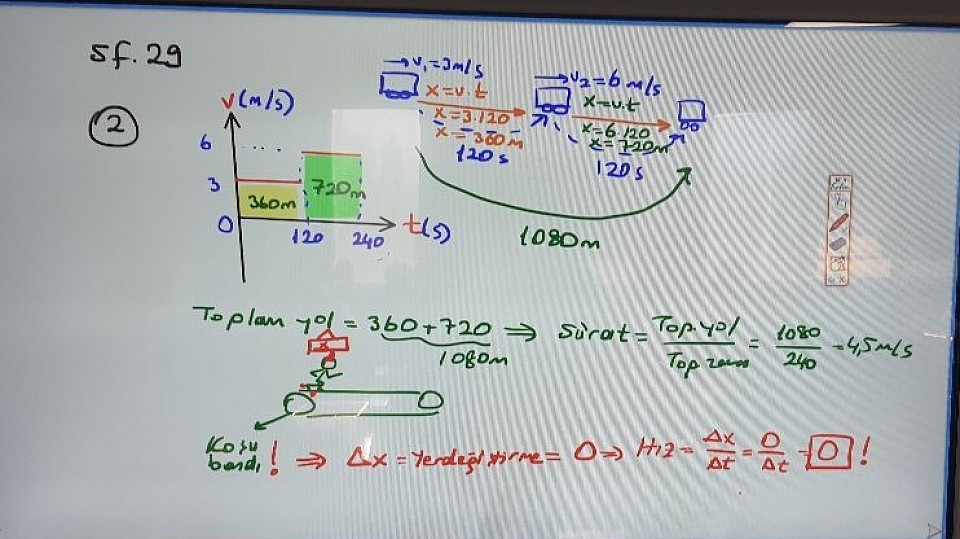 sf. 29
2
V(m/s)
6
3
0
360m
720m
120
240
t(s)
V₁=3m/s
x=v.t
x=3.120
x=360m
120s
V₂=6m/s
x=v.t
x=6.120
x=720m
120s
1080m
Toplam yol = 360+720 ⇒ Sürat = Top.yol / Top zaman = 1080 / 240 = 4,5m/s
1080m
Koşu
bandı ! ⇒ Δx = Yerdeğiştirme = 0 ⇒ Hız = Δx / Δt = 0 / Δt = 0 !